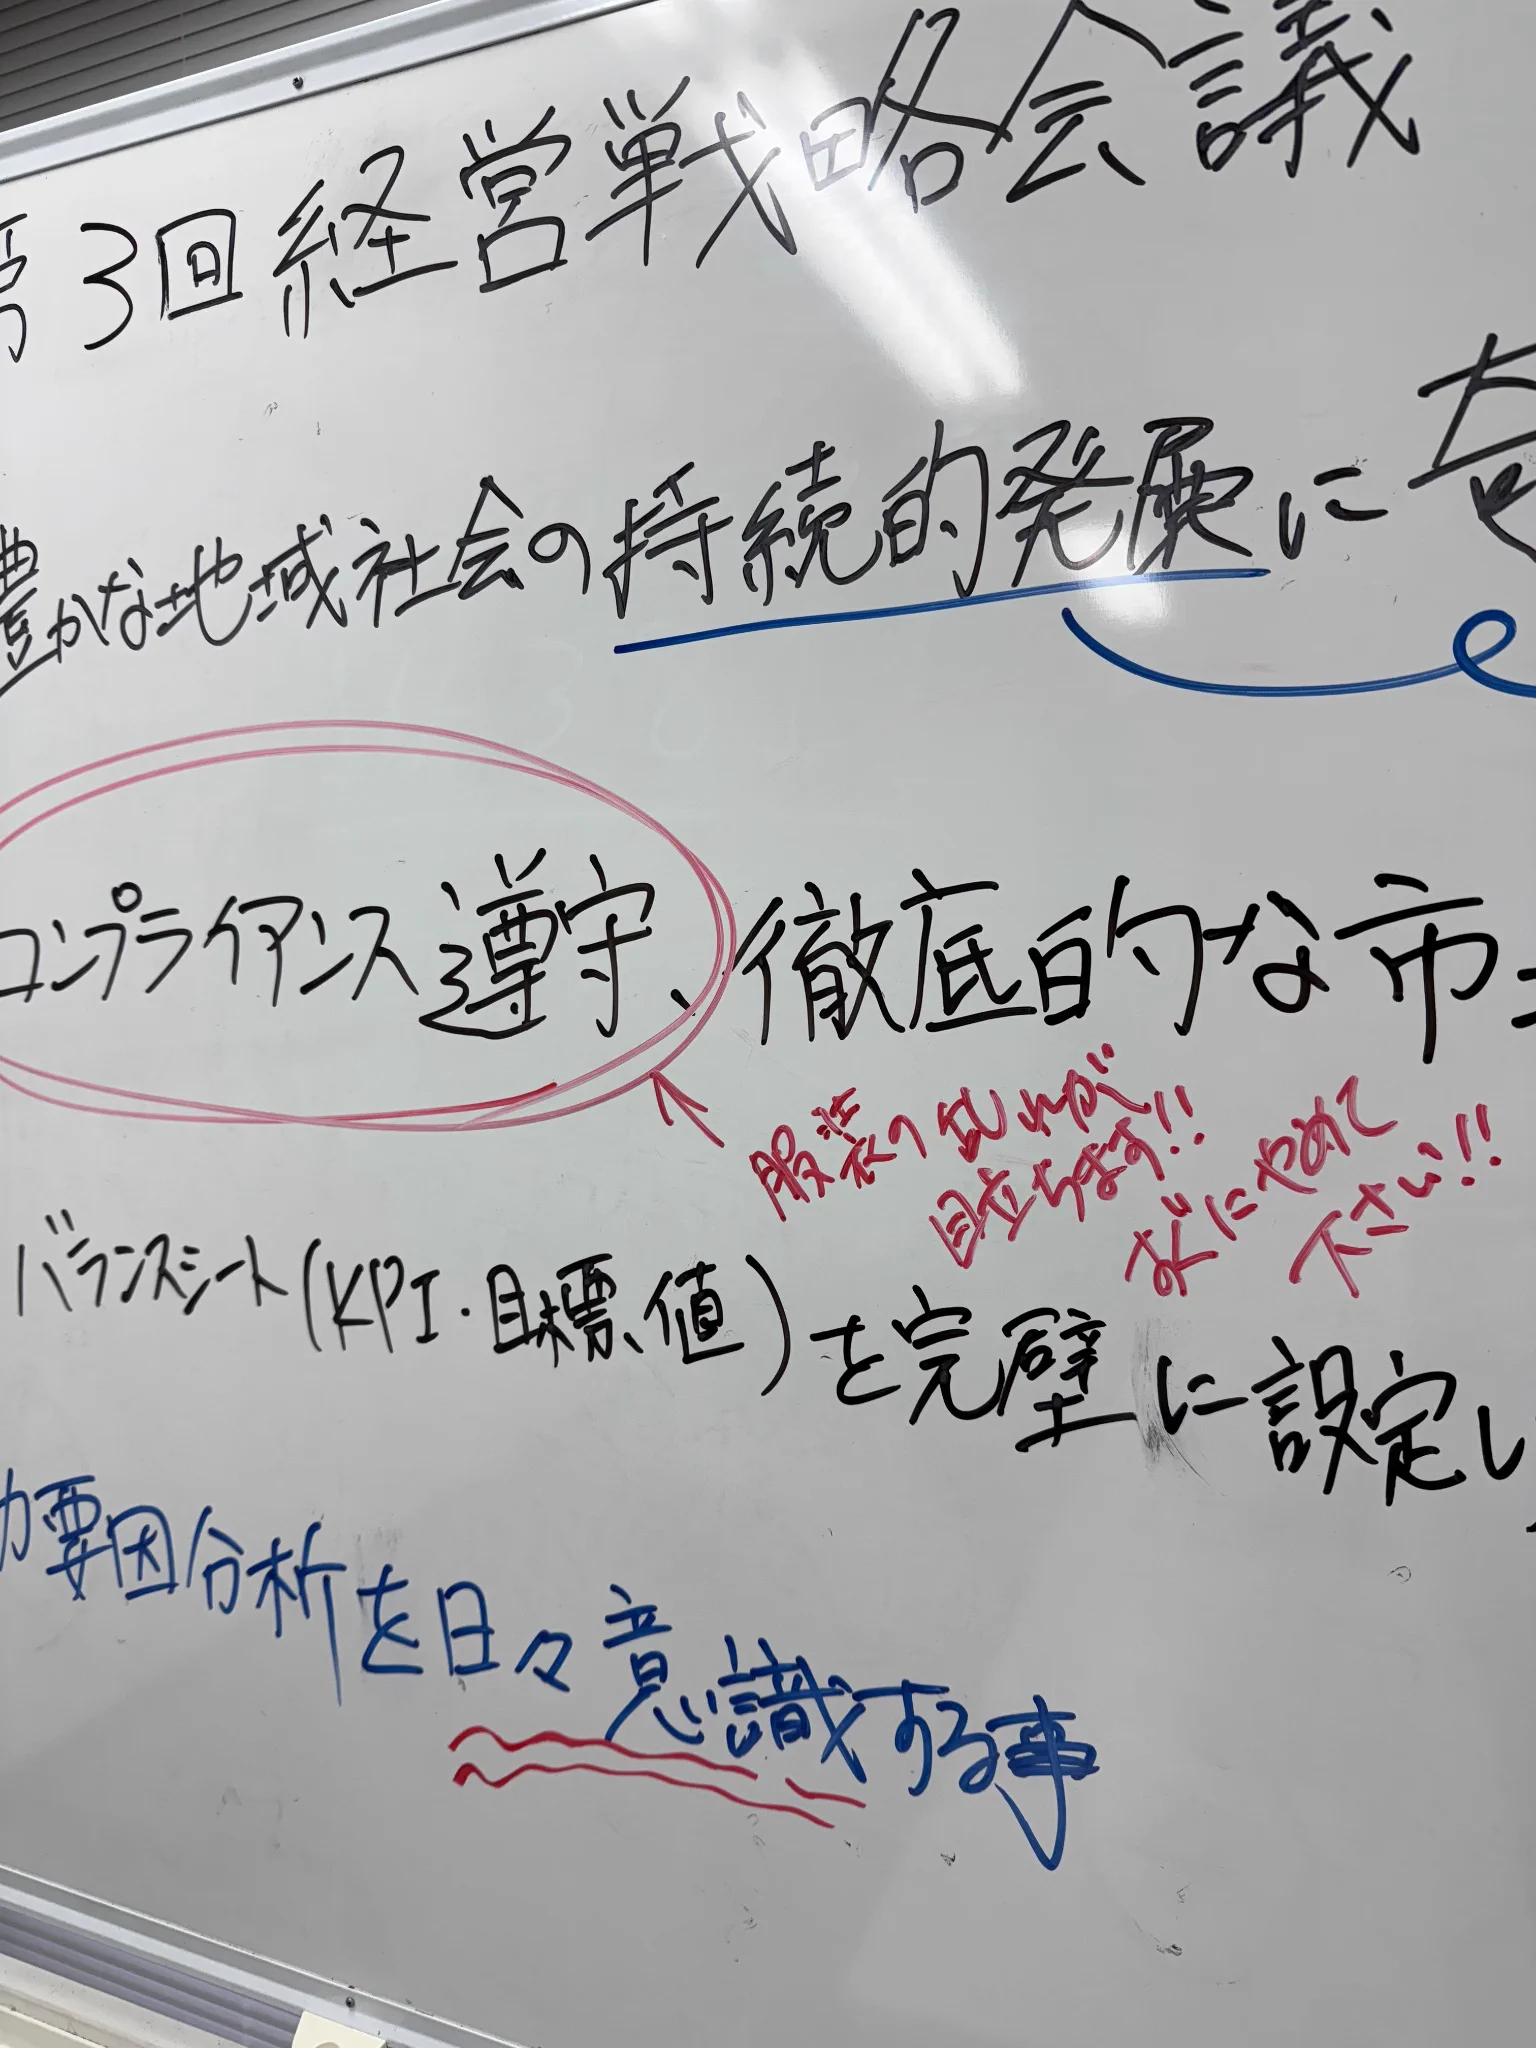 第3回経営戦略会議
豊かな地域社会の持続的発展に
コンプライアンス遵守、徹底的な市
服装の乱れが
目立ちます!!
ほんにやめて
下さい!!
バランスシート(KPI・目標、値)を完璧に設定し
力要因分析を日々意識する事